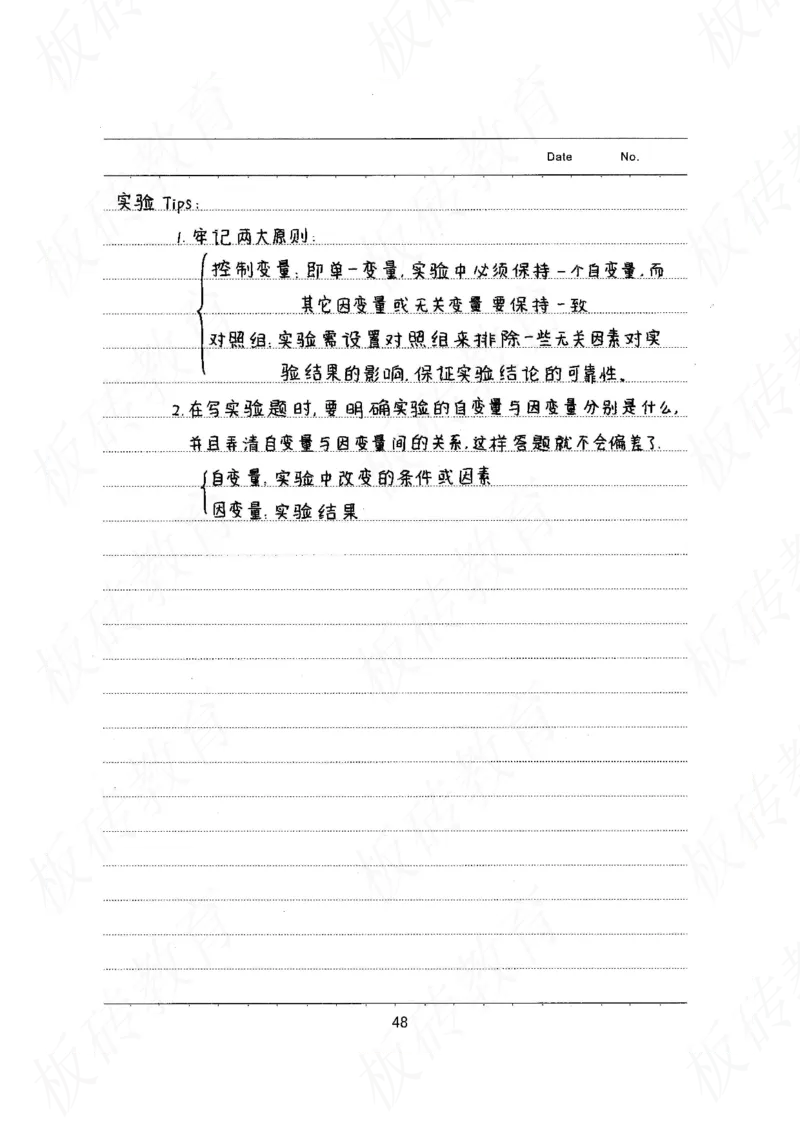 Date No.
实验 Tips:
1. 牢记两大原则:
控制变量: 即单一变量, 实验中必须保持一个自变量, 而
其它因变量或无关变量要保持一致
对照组: 实验需设置对照组来排除一些无关因素对实
验结果的影响, 保证实验结论的可靠性。
2. 在写实验题时, 要明确实验的自变量与因变量分别是什么,
并且弄清自变量与因变量间的关系, 这样答题就不会偏差了.
自变量: 实验中改变的条件或因素
因变量: 实验结果
48
板砖教育